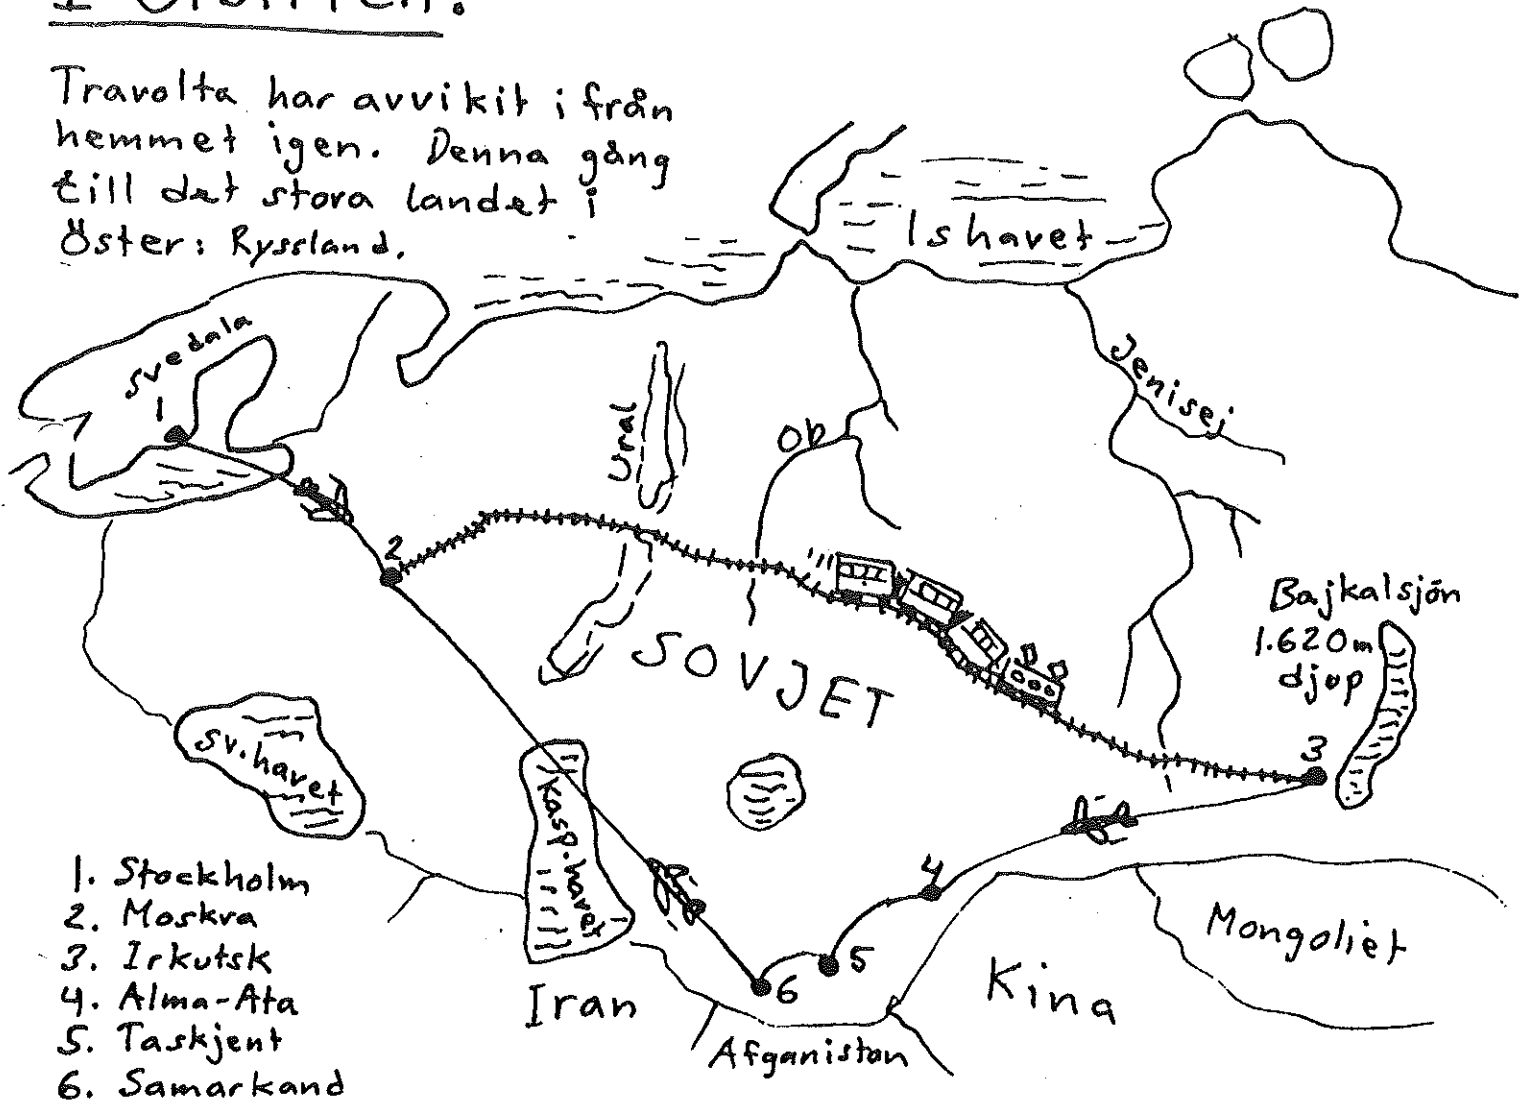 Travolta har avvikit ifrån
hemmet igen. Denna gång
till det stora landet i
Öster: Ryssland.
Ishavet
Svedala
1
Jenisej
Ural
Ob
2
SOVJET
Bajkalsjön
1.620 m
djup
3
Sv.havet
Kasp.havet
4
5
6
Mongoliet
Kina
Iran
Afganistan
1. Stockholm
2. Moskva
3. Irkutsk
4. Alma-Ata
5. Taskjent
6. Samarkand